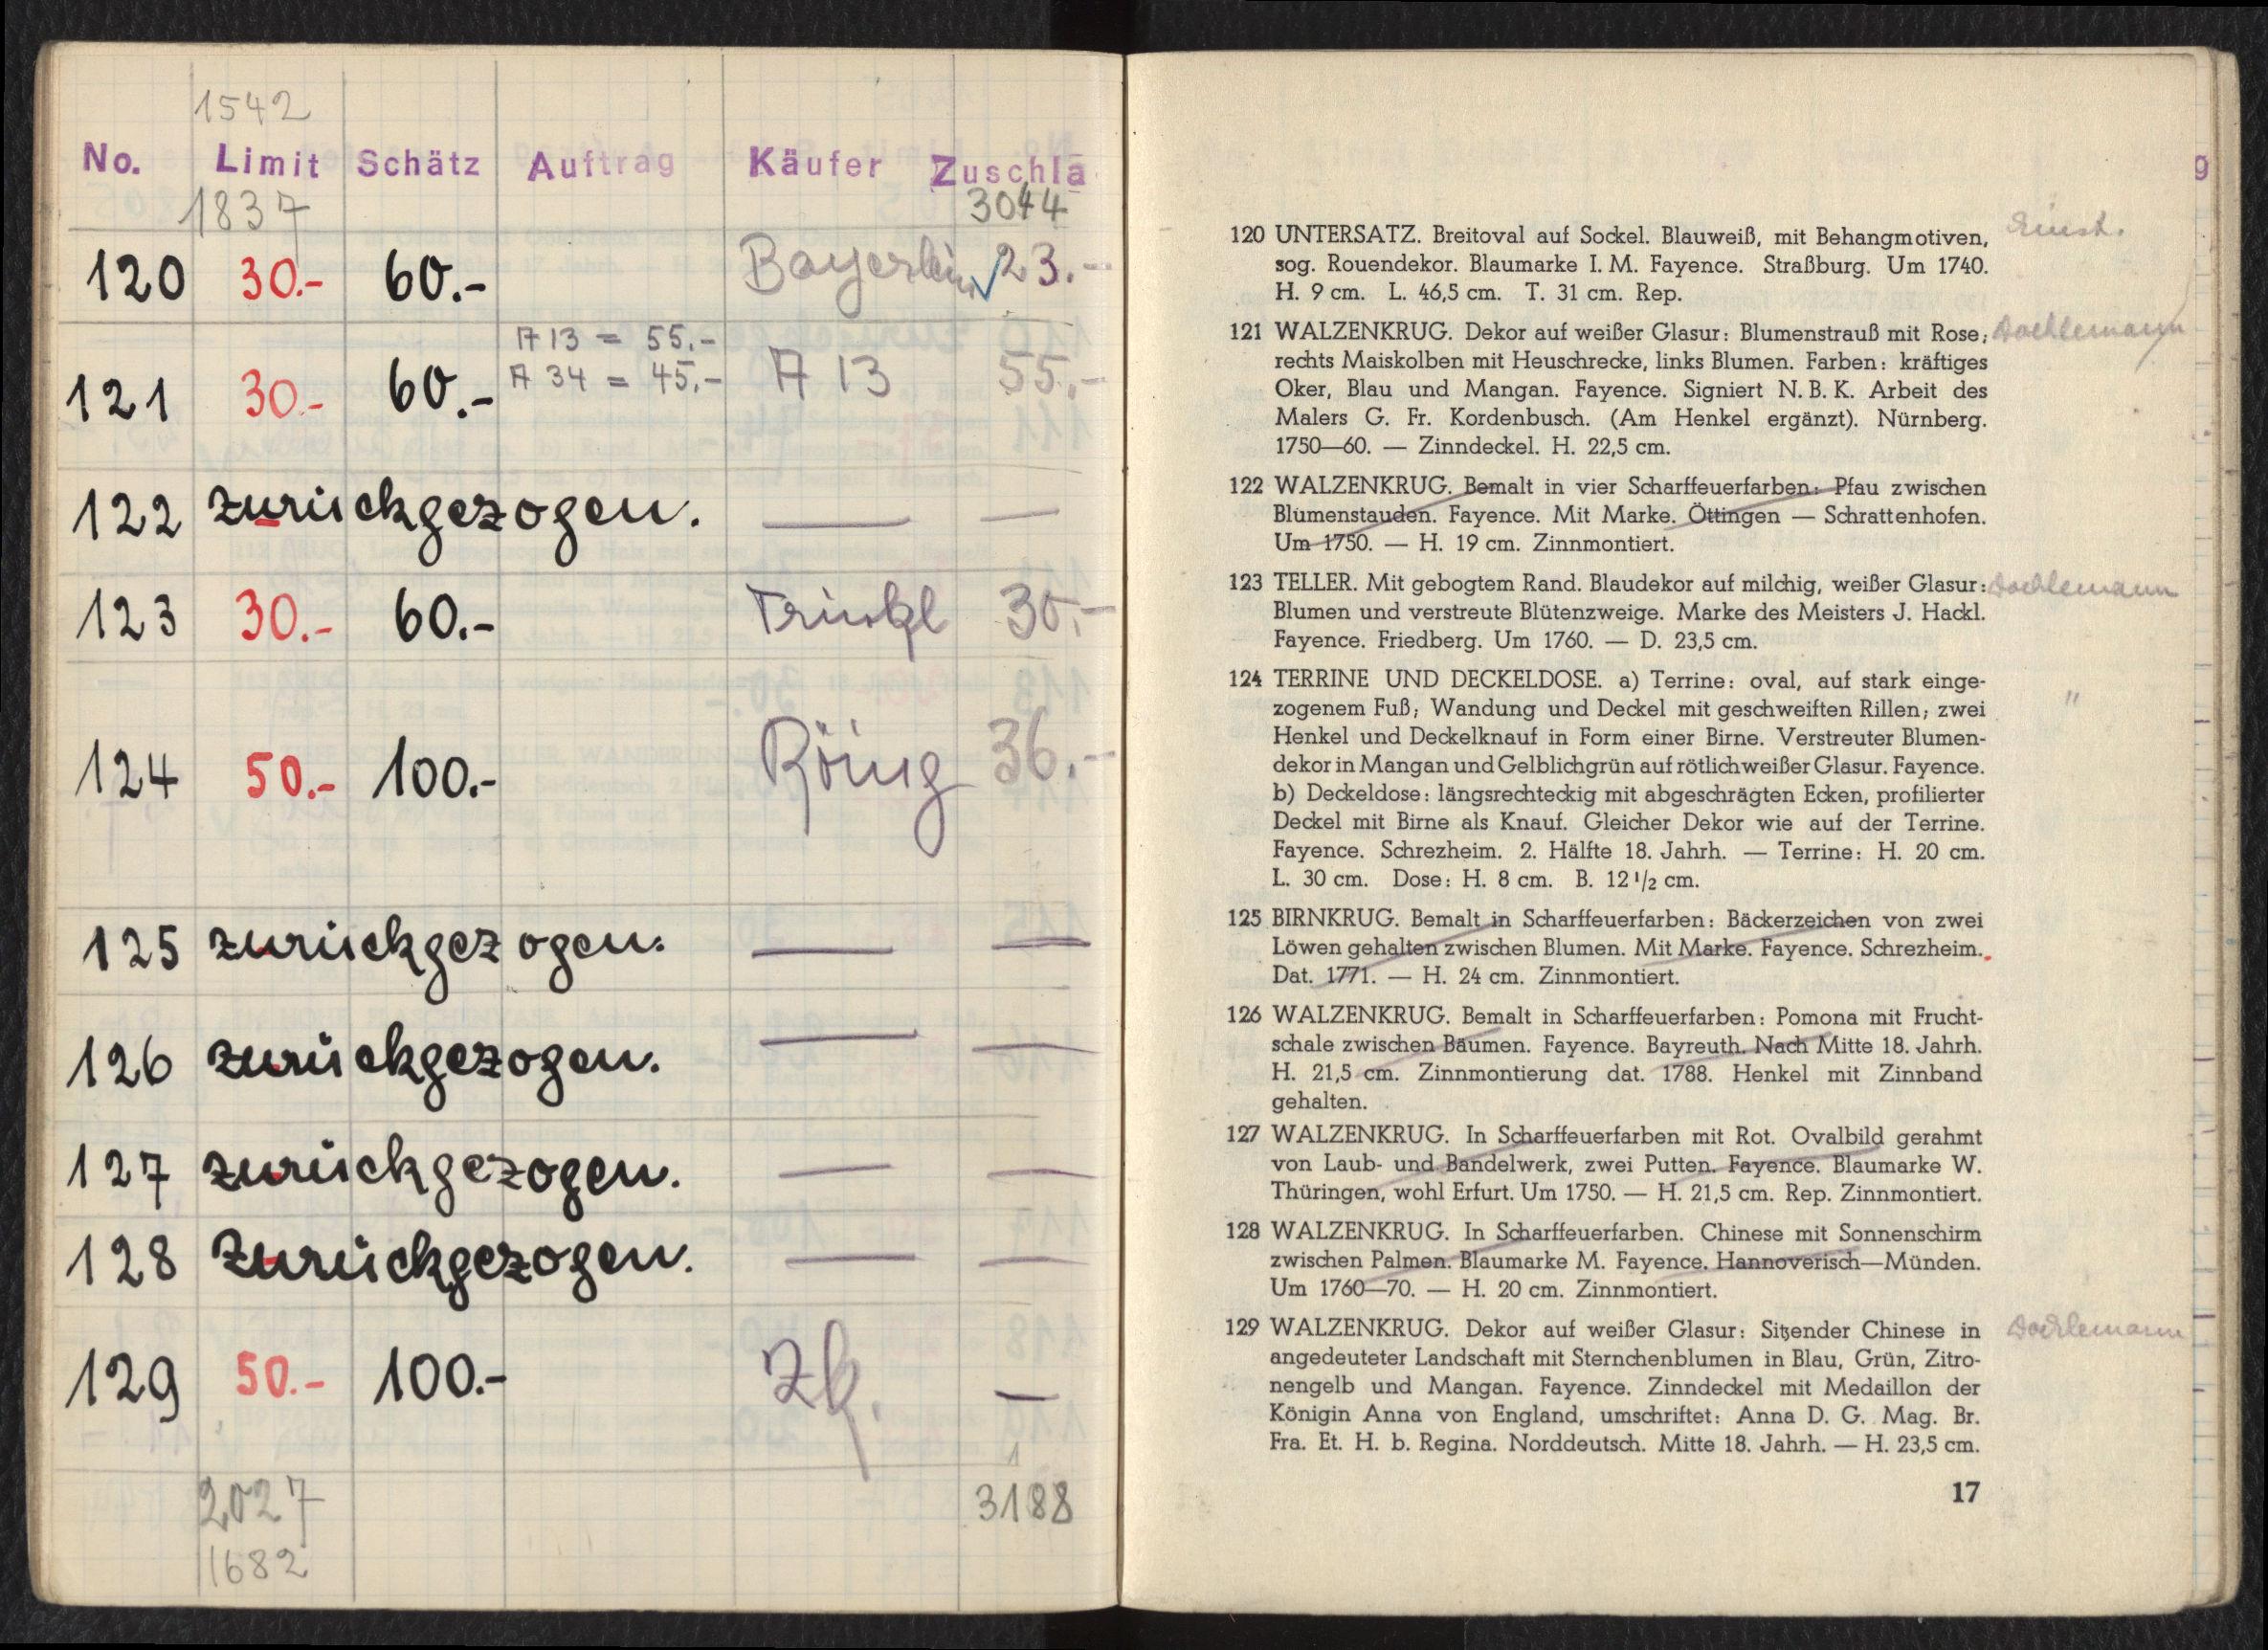 1542
No. Limit Schätz Auftrag Käufer Zuschla
1837 3044
120 30.- 60.- Bayerlein 23.-
A 13 = 55.-
121 30.- 60.- A 34 = 45.- A 13 55.-
122 zurückgezogen. — —
123 30.- 60.- 30.-
124 50.- 100.- 36.-
125 zurückgezogen. — —
126 zurückgezogen. — —
127 zurückgezogen. — —
128 Zurückgezogen. — —
129 50.- 100.- Zk. —
2027 3188
1682
g
120 UNTERSATZ. Breitoval auf Sockel. Blauweiß, mit Behangmotiven,
sog. Rouendekor. Blaumarke I. M. Fayence. Straßburg. Um 1740.
H. 9 cm. L. 46,5 cm. T. 31 cm. Rep.
121 WALZENKRUG. Dekor auf weißer Glasur: Blumenstrauß mit Rose; Dochlemann
rechts Maiskolben mit Heuschrecke, links Blumen. Farben: kräftiges
Oker, Blau und Mangan. Fayence. Signiert N. B. K. Arbeit des
Malers G. Fr. Kordenbusch. (Am Henkel ergänzt). Nürnberg.
1750—60. — Zinndeckel. H. 22,5 cm.
122 WALZENKRUG. Bemalt in vier Scharffeuerfarben: Pfau zwischen
Blumenstauden. Fayence. Mit Marke. Öttingen — Schrattenhofen.
Um 1750. — H. 19 cm. Zinnmontiert.
123 TELLER. Mit gebogtem Rand. Blaudekor auf milchig, weißer Glasur: Dochlemann
Blumen und verstreute Blütenzweige. Marke des Meisters J. Hackl.
Fayence. Friedberg. Um 1760. — D. 23,5 cm.
124 TERRINE UND DECKELDOSE. a) Terrine: oval, auf stark einge-
zogenem Fuß; Wandung und Deckel mit geschweiften Rillen; zwei "
Henkel und Deckelknauf in Form einer Birne. Verstreuter Blumen-
dekor in Mangan und Gelblichgrün auf rötlichweißer Glasur. Fayence.
b) Deckeldose: längsrechteckig mit abgeschrägten Ecken, profilierter
Deckel mit Birne als Knauf. Gleicher Dekor wie auf der Terrine.
Fayence. Schrezheim. 2. Hälfte 18. Jahrh. — Terrine: H. 20 cm.
L. 30 cm. Dose: H. 8 cm. B. 12 1/2 cm.
125 BIRNKRUG. Bemalt in Scharffeuerfarben: Bäckerzeichen von zwei
Löwen gehalten zwischen Blumen. Mit Marke. Fayence. Schrezheim.
Dat. 1771. — H. 24 cm. Zinnmontiert.
126 WALZENKRUG. Bemalt in Scharffeuerfarben: Pomona mit Frucht-
schale zwischen Bäumen. Fayence. Bayreuth. Nach Mitte 18. Jahrh.
H. 21,5 cm. Zinnmontierung dat. 1788. Henkel mit Zinnband
gehalten.
127 WALZENKRUG. In Scharffeuerfarben mit Rot. Ovalbild gerahmt
von Laub- und Bandelwerk, zwei Putten. Fayence. Blaumarke W.
Thüringen, wohl Erfurt. Um 1750. — H. 21,5 cm. Rep. Zinnmontiert.
128 WALZENKRUG. In Scharffeuerfarben. Chinese mit Sonnenschirm
zwischen Palmen. Blaumarke M. Fayence. Hannoverisch—Münden.
Um 1760—70. — H. 20 cm. Zinnmontiert.
129 WALZENKRUG. Dekor auf weißer Glasur: Sitzender Chinese in Dochlemann
angedeuteter Landschaft mit Sternchenblumen in Blau, Grün, Zitro-
nengelb und Mangan. Fayence. Zinndeckel mit Medaillon der
Königin Anna von England, umschriftet: Anna D. G. Mag. Br.
Fra. Et. H. b. Regina. Norddeutsch. Mitte 18. Jahrh. — H. 23,5 cm.
17